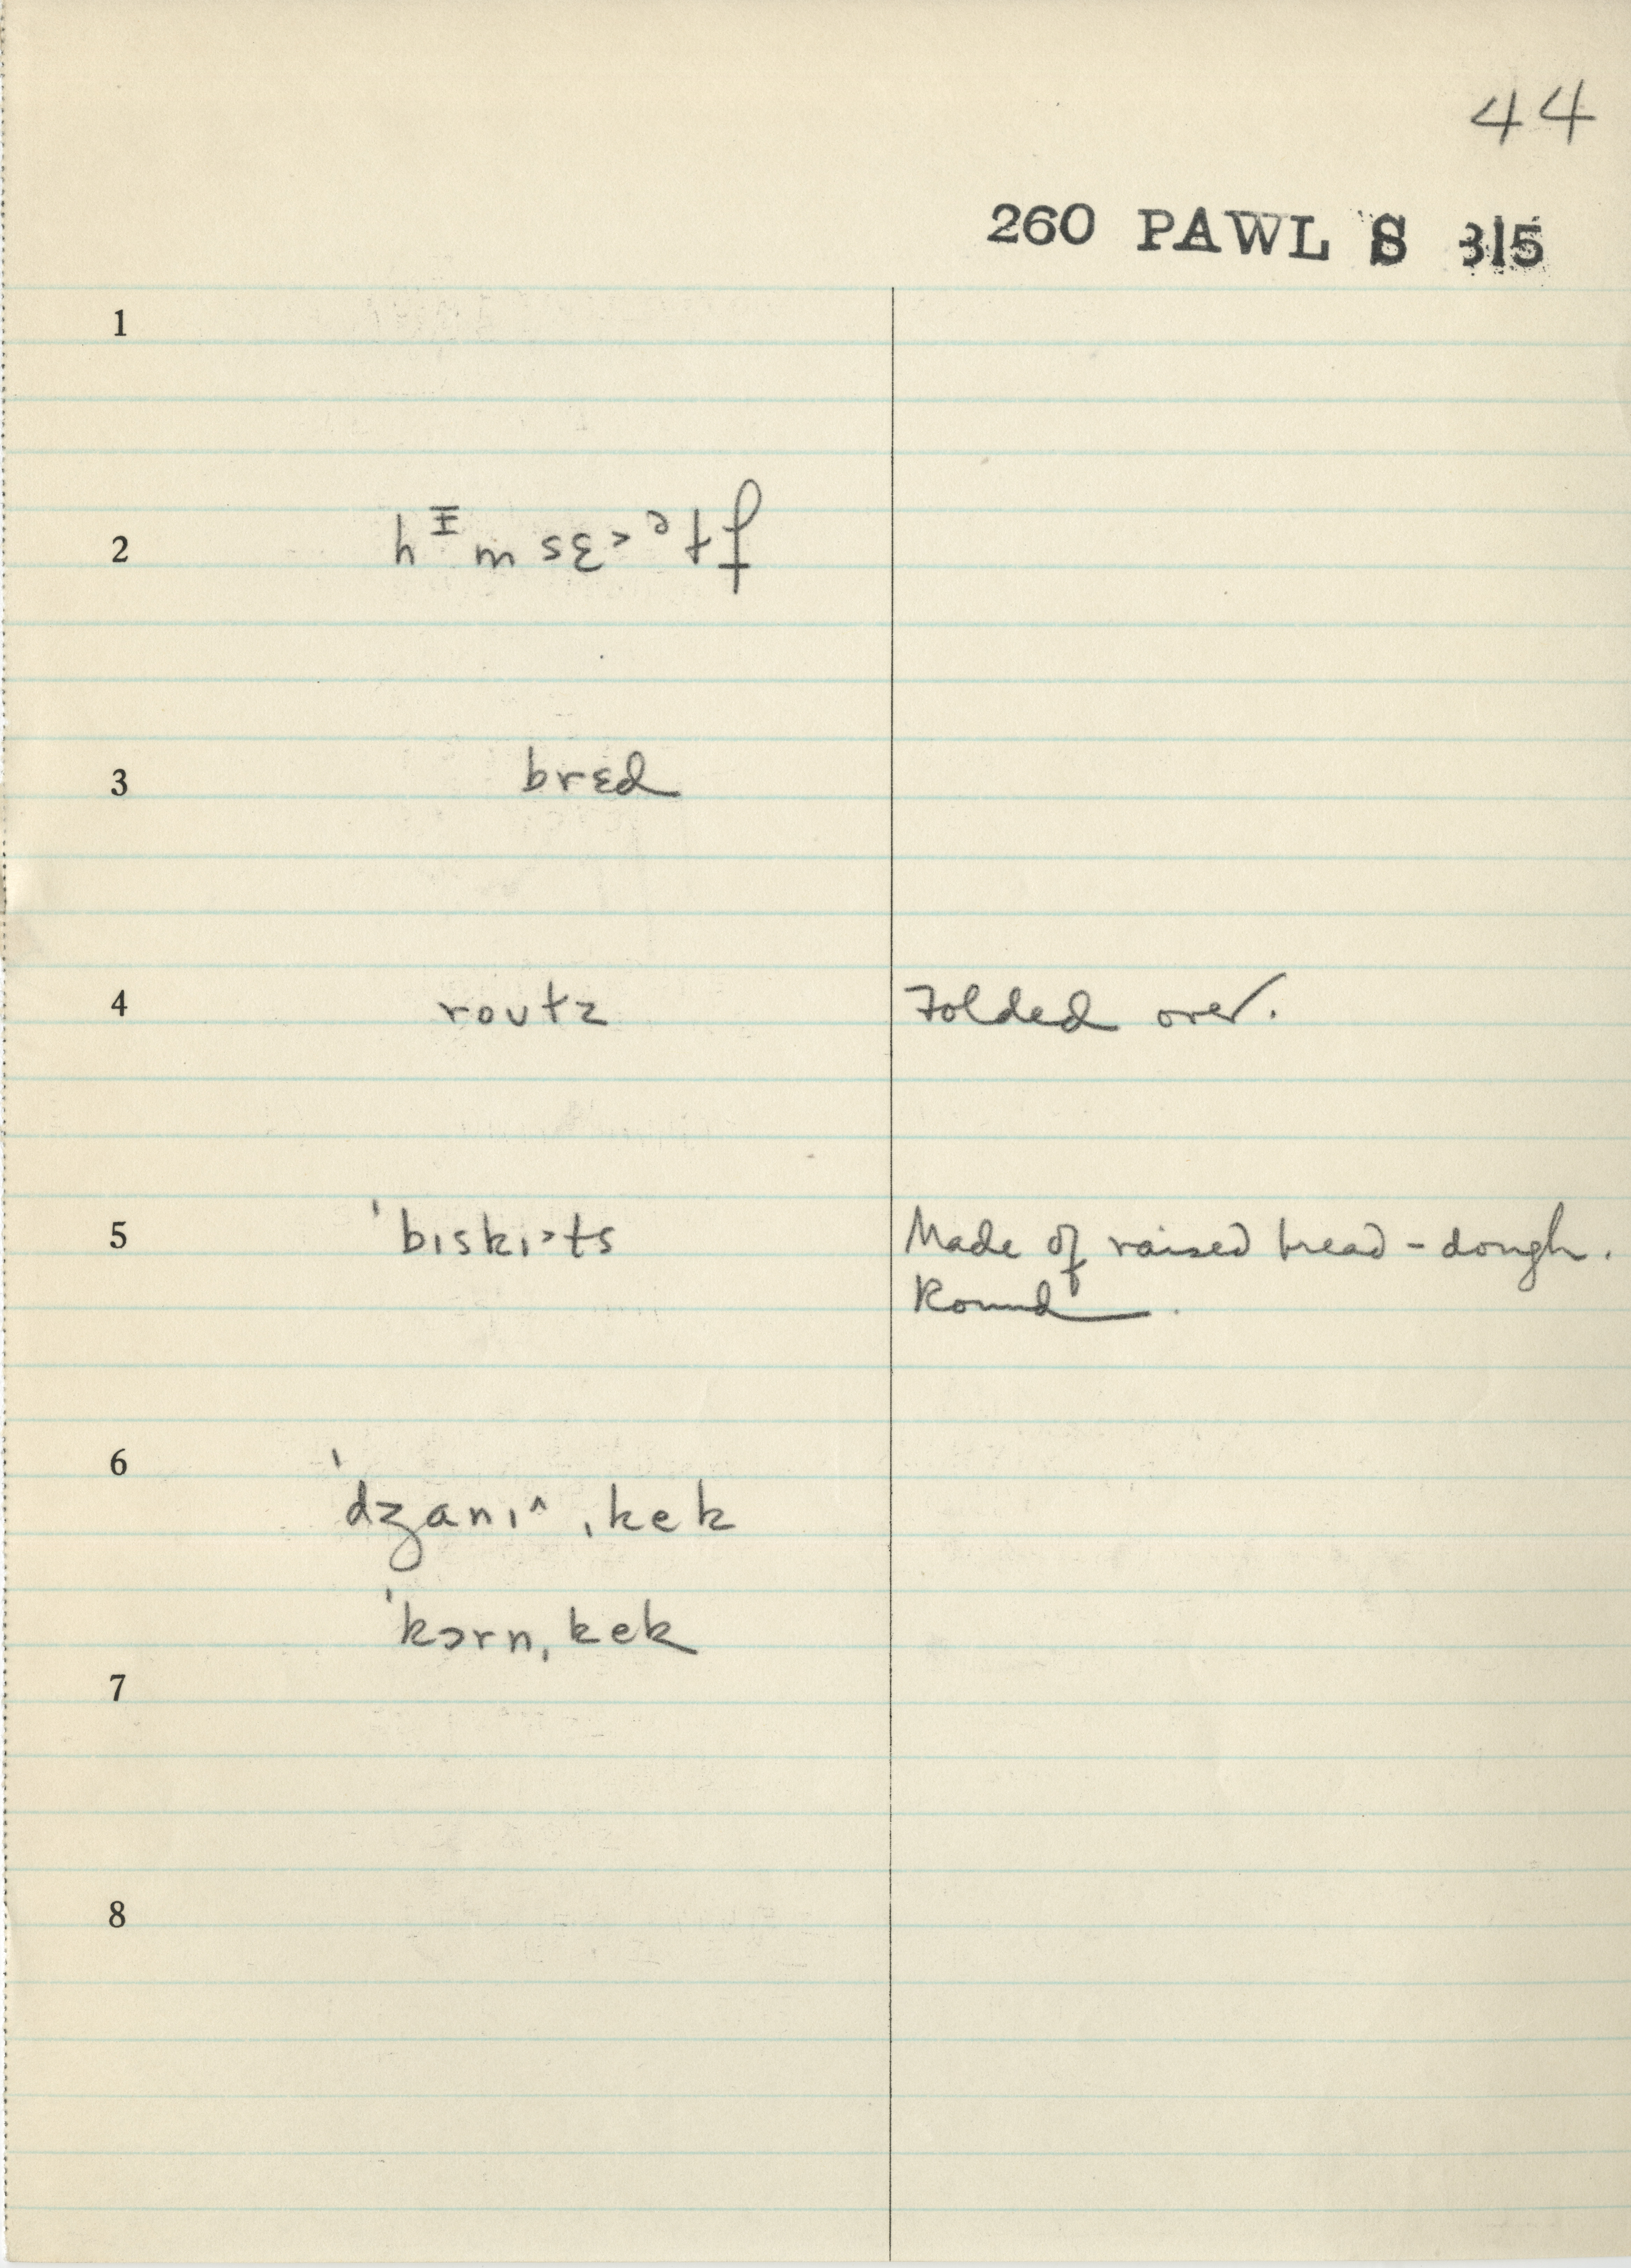 44
260 PAWL S 315
1
2 hᵻmsɛ˃ᵊɫf
3 brɛd
4 roʊɫz Folded over.
5 ˈbɪskɪ˃ts Made of raised bread-dough.
Round.
6
ˈdʒanɪ^ ˌkek
ˈkɔrnˌkek
7
8